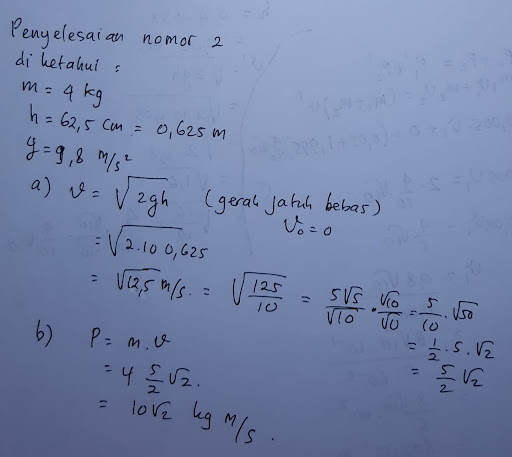 Penyelesaian nomor 2
diketahui :
m = 4 kg
h = 62,5 cm = 0,625 m
g = 9,8 m/s²
a) v = √2gh (gerak jatuh bebas)
v₀ = 0
= √2.10 0,625
= √12,5 m/s. = √(125/10) = 5√5/√10 · √10/√10 = 5/10 · √50
= 1/2 · 5 · √2
= 5/2 √2
b) P = m . v
= 4 5/2 √2.
= 10√2 kg m/s.